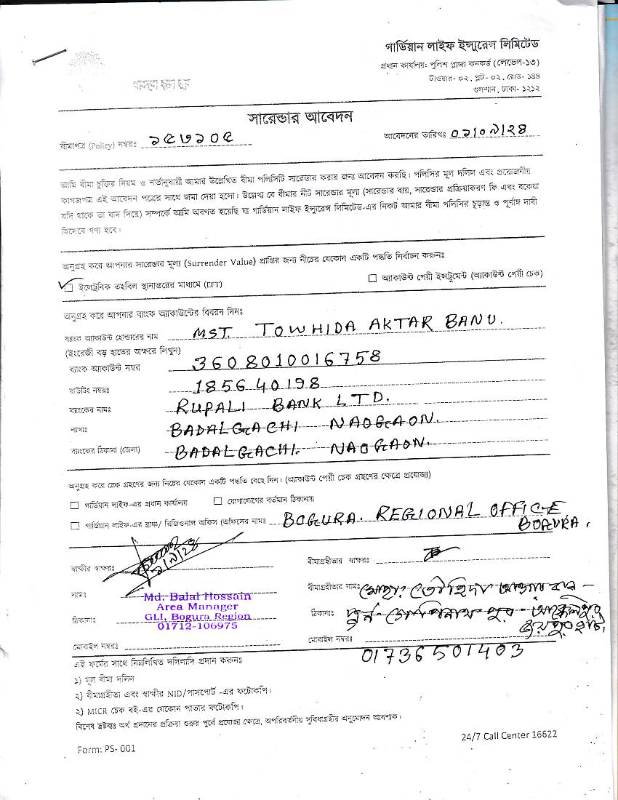 গার্ডিয়ান লাইফ ইন্স্যুরেন্স লিমিটেড
প্রধান কার্যালয়- পুলিশ প্লাজা কনকর্ড (লেভেল-১৩)
টাওয়ার- ০২, প্লট- ০২, রোড- ১৪৪
গুলশান, ঢাকা- ১২১২
সারেন্ডার আবেদন
বীমাপত্র (Policy) নম্বরঃ ১৫৭২০৫ আবেদনের তারিখঃ ০২।০৯।২৪
আমি বীমা চুক্তির নিয়ম ও শর্তানুযায়ী আমার উল্লেখিত বীমা পলিসিটি সারেন্ডার করার জন্য আবেদন করছি। পলিসির মূল দলিল এবং প্রয়োজনীয়
কাগজপত্র এই আবেদন পত্রের সাথে জমা দেয়া হলো। উল্লেখ্য যে বীমার নীট সারেন্ডার মূল্য (সারেন্ডার ব্যয়, সারেন্ডার প্রক্রিয়াকরণ ফি এবং বকেয়া
যদি থাকে তা বাদ দিয়ে) সম্পর্কে আমি অবগত হয়েছি যা গার্ডিয়ান লাইফ ইন্স্যুরেন্স লিমিটেড-এর নিকট আমার বীমা পলিসির চূড়ান্ত ও পূর্ণাঙ্গ দাবী
হিসেবে গণ্য হবে।
অনুগ্রহ করে আপনার সারেন্ডার মূল্য (Surrender Value) প্রাপ্তির জন্য নীচের যেকোন একটি পদ্ধতি নির্বাচন করুনঃ
ইলেক্ট্রনিক তহবিল স্থানান্তরের মাধ্যমে (EFT) অ্যাকাউন্ট পেয়ী ইন্সট্রুমেন্ট (অ্যাকাউন্ট পেয়ী চেক)
অনুগ্রহ করে আপনার ব্যাংক অ্যাকাউন্টের বিবরন দিনঃ
ব্যাংক অ্যাকাউন্ট হোল্ডারের নাম MST. TOWHIDA AKTAR BANU.
(ইংরেজী বড় হাতের অক্ষরে লিখুন)
ব্যাংক অ্যাকাউন্ট নম্বর 3608010016758
রাউটিং নম্বরঃ 185640198
ব্যাংকের নামঃ RUPALI BANK LTD.
শাখাঃ BADALGACHI NAOGAON.
ব্যাংকের ঠিকানা (জেলা) BADALGACHI. NAOGAON.
অনুগ্রহ করে চেক গ্রহণের জন্য নিচের যেকোন একটি পদ্ধতি বেছে নিন। (অ্যাকাউন্ট পেয়ী চেক গ্রহণের ক্ষেত্রে প্রযোজ্য)
গার্ডিয়ান লাইফ-এর প্রধান কার্যালয় যোগাযোগের বর্তমান ঠিকানায়
গার্ডিয়ান লাইফ-এর ব্রাঞ্চ/ রিজিওনাল অফিস (অফিসের নামঃ BOGURA. REGIONAL OFFICE
BOGURA.
স্বাক্ষীর স্বাক্ষরঃ ২।৯।২৪ বীমাগ্রহীতার স্বাক্ষরঃ
নামঃ Md. Balal Hossain বীমাগ্রহীতার নামঃ মোছাঃ তৌহিদা আক্তার বানু
Area Manager
ঠিকানাঃ GLI, Bogura Region ঠিকানাঃ পূর্ব গোপিনাথপুর আক্কেলপুর
01712-106975 জয়পুরহাট
মোবাইল নম্বরঃ মোবাইল নম্বরঃ 01736501403
এই ফর্মের সাথে নিম্নলিখিত দলিলাদি প্রদান করুনঃ
১) মূল বীমা দলিল
২) বীমাগ্রহীতা এবং স্বাক্ষীর NID/পাসপোর্ট -এর ফটোকপি।
২) MICR চেক বই-এর যেকোন পাতার ফটোকপি।
বিশেষ দ্রষ্টব্যঃ অর্থ প্রদানের প্রক্রিয়া শুরুর পূর্বে প্রযোজ্য ক্ষেত্রে, অপরিবর্তনীয় সুবিধাভোগীর অনুমোদন আবশ্যক।
Form: PS- 001 24/7 Call Center 16622